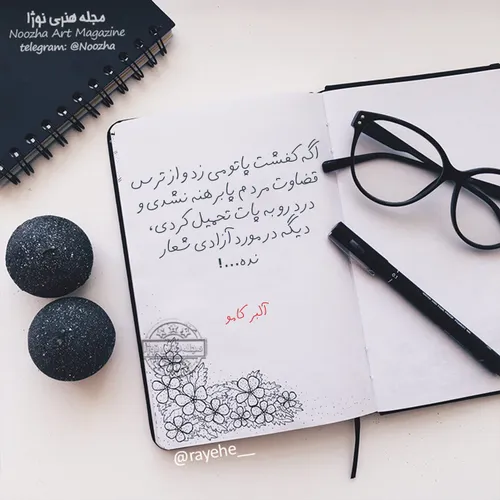 مجله هنری نوژا
Noozha Art Magazine
telegram: @Noozha
اگه کفشت پاتو می زد و از ترس
قضاوت مردم پابرهنه نشدی و
درد رو به پات تحمیل کردی،
دیگه در مورد آزادی شعار
نده...!
آلبر کامو
@rayehe__